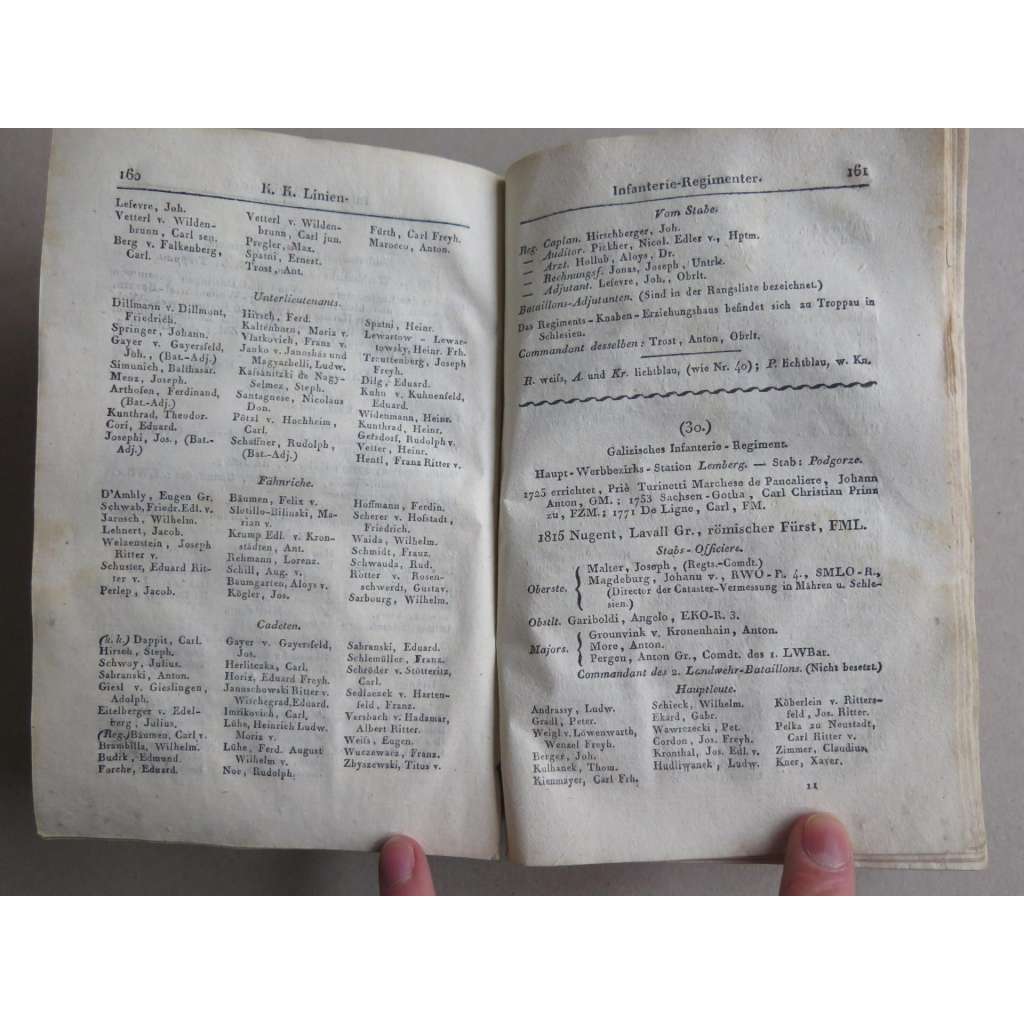 160
K. K. Linien-
Lefevre, Joh.
Vetterl v. Wilden-
brunn, Carl sen.
Berg v. Falkenberg,
Carl.
Vetterl v. Wilden-
brunn, Carl jun.
Pregler, Max.
Spatni, Ernest.
Trost, Ant.
Fürth, Carl Freyh.
Marocco, Anton.
Unterlieutenants.
Dillmann v. Dillmont,
Friedrich.
Springer, Johann.
Gayer v. Gayersfeld,
Joh., (Bat.-Adj.)
Simunich, Balthasar.
Menz, Joseph.
Arthofen, Ferdinand,
(Bat.-Adj.)
Kunthrad, Theodor.
Cori, Eduard.
Josephi, Jos., (Bat.-
Adj.)
Hirsch, Ferd.
Kaltenborn, Moriz v.
Vlatkovich, Franz v.
Janko v. Janoshás und
Magyarbelli, Ludw.
Kaisánitzki de Nagy-
Selmez, Steph.
Santagnese, Nicolaus
Don.
Pötzl v. Hochheim,
Carl.
Schaffner, Rudolph,
(Bat.-Adj.)
Spatni, Heinr.
Lewartow-Lewar-
towsky, Heinr. Frh.
Treuttenberg, Joseph
Freyh.
Dilg, Eduard.
Kuhn v. Kuhnenfeld,
Eduard.
Widenmann, Heinr.
Kunthrad, Heinr.
Gersdorf, Rudolph v.
Vetter, Heinr.
Hentl, Franz Ritter v.
Fähnriche.
D'Ambly, Eugen Gr.
Schwab, Friedr. Edl. v.
Jarosch, Wilhelm.
Lehnert, Jacob.
Welzenstein, Joseph
Ritter v.
Schuster, Eduard Rit-
ter v.
Perlep, Jacob.
Bäumen, Felix v.
Slotillo-Bilinski, Ma-
rian v.
Krump Edl. v. Kron-
städten, Ant.
Rehmann, Lorenz.
Schill, Aug. v.
Baumgarten, Aloys v.
Kögler, Jos.
Hoffmann, Ferdin.
Scherer v. Hofstadt,
Friedrich.
Waida, Wilhelm.
Schmidt, Franz.
Schwauda, Rud.
Rötter v. Rosen-
schwerdt, Gustav.
Sarbourg, Wilhelm.
Cadeten.
(k. k.) Dappit, Carl.
Hirsch, Steph.
Schway, Julius.
Sabranski, Anton.
Giesl v. Gieslingen,
Adolph.
Eitelberger v. Edel-
berg, Julius.
(Reg.) Bäumen, Carl v.
Brambilla, Wilhelm.
Budik, Edmund.
Farche, Eduard.
Gayer v. Gayersfeld,
Jos.
Herliczka, Carl.
Horix, Eduard Freyh.
Januschowski Ritter v.
Wischegrad, Eduard.
Imrikovich, Carl.
Lühe, Heinrich Ludw.
Moriz v.
Lühe, Ferd. August
Wilhelm v.
Noe, Rudolph.
Sabranski, Eduard.
Schlemüller, Franz.
Schröder v. Stötteritz,
Carl.
Sedlaezek v. Harten-
feld, Franz.
Varsbach v. Hadamar,
Albert Ritter.
Weiss, Eugen.
Wuczewacz, Franz.
Zbyszewski, Titus v.
Infanterie-Regimenter.
161
Vom Stabe.
Reg. Caplan. Hirschberger, Joh.
— Auditor. Pickher, Nicol. Edler v., Hptm.
— Arzt. Hollub, Aloys, Dr.
— Rechnungsf. Jonas, Joseph, Untrle.
— Adjutant. Lefevre, Joh., Obrlt.
Bataillons-Adjutanten. (Sind in der Rangsliste bezeichnet.)
Das Regiments-Knaben-Erziehungshaus befindet sich zu Troppau in
Schlesien.
Commandant desselben: Trost, Anton, Obrlt.
R. weiss, A. und Kr. lichtblau, (wie Nr. 40); P. lichtblau, w. Kn.
(30.)
Galizisches Infanterie-Regiment.
Haupt-Werbbezirks-Station Lemberg. — Stab: Podgorze.
1725 errichtet, Prià Turinetti Marchese de Pancaliere, Johann
Anton, GM.; 1753 Sachsen-Gotha, Carl Christian Prinz
zu, FZM.; 1771 De Ligne, Carl, FM.
1815 Nugent, Lavall Gr., römischer Fürst, FML.
Stabs-Officiere.
Oberste. Malter, Joseph, (Regts.-Comdt.)
Magdeburg, Johann v., RWO-R. 4., SMLO-R.,
(Director der Cataster-Vermessung in Mähren u. Schle-
sien.)
Obstlt. Gariboldi, Angelo, EKO-R. 3.
Majors. Grounvink v. Kronenhain, Anton.
More, Anton.
Pergen, Anton Gr., Comdt. des 1. LWBat.
Commandant des 2. Landwehr-Bataillons. (Nicht besetzt.)
Hauptleute.
Andrassy, Ludw.
Gradl, Peter.
Weigl v. Löwenwarth,
Wenzel Freyh.
Berger, Joh.
Kulhanek, Thom.
Kienmayer, Carl Frh.
Schieck, Wilhelm.
Ekard, Gabr.
Wawrczecki, Pet.
Gordon, Jos. Freyh.
Kronthal, Jos. Edl. v.
Hudliwanek, Ludw.
Köberlein v. Ritters-
feld, Jos. Ritter.
Pelka zu Neustadt,
Carl Ritter v.
Zimmer, Claudius.
Kner, Xaver.
11